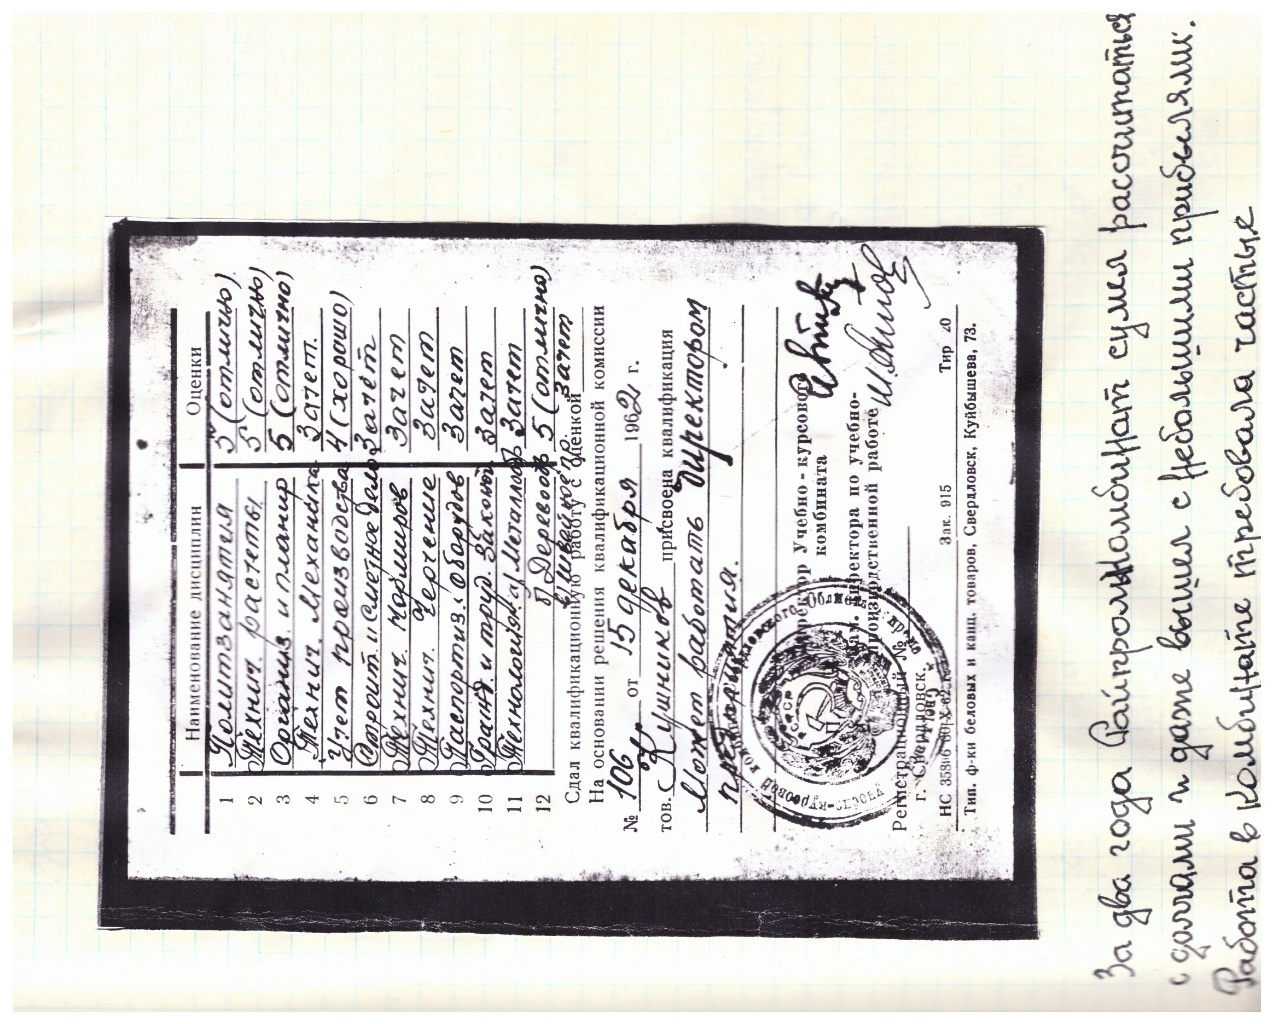 Наименование дисциплин Оценки
1 Политзанятия 5 (отлично)
2 Технич. расчеты 5 (отлично)
3 Организ. и планир 5 (отлично)
4 Технич. Механика Зачет.
5 Учет производства 4 (хорошо)
6 Строит. и сметное дело Зачёт
7 Технич. Нормиров Зачет
8 Технич. Черчение Зачет
9 Распортиз. Оборудов Зачет
10 Гражд. и труд. Законод Зачет
11 Технология: а) Металлов Зачет
12 б) Деревооб 5 (отлично)
в) швейное пр. Зачет
Сдал квалификационную работу с оценкой
На основании решения квалификационной комиссии
№ 106 от 15 декабря 1962 г.
тов. Кушников присвоена квалификация
Может работать Директором
предприятия.
Директор Учебно-курсового
комбината
Зам. директора по учебно-
производственной работе
Регистрационный №
г. Свердловск
НС 35836 30/X-62 г. Зак. 915 Тир 20
Тип. ф-ки беловых и канц. товаров, Свердловск, Куйбышева, 73.
За два года Райпромкомбинат сумел рассчитаться
с долгами и даже вышел с небольшими прибылями.
Работа в комбинате требовала частые